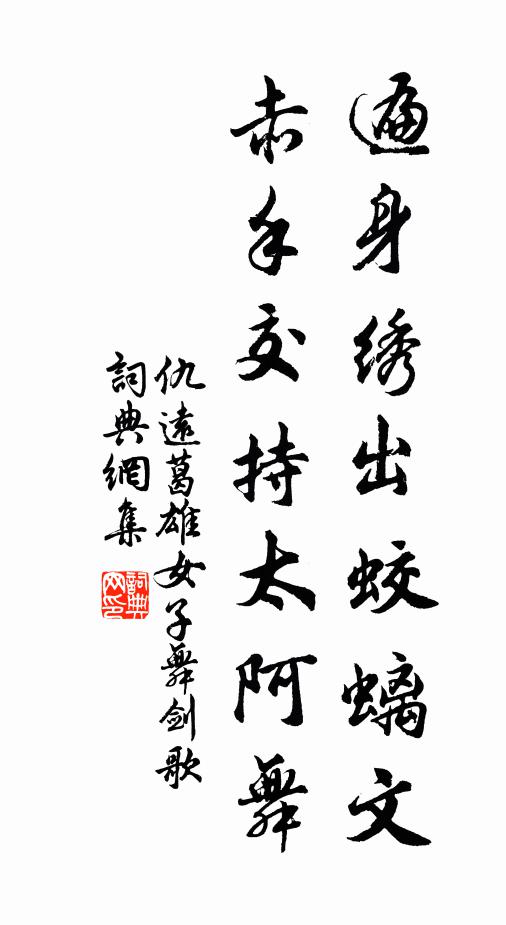 遍身绣出蛟螭文
赤手交持太阿舞
仇遠葛雄女子舞劍歌
詞典網集
詞典网印